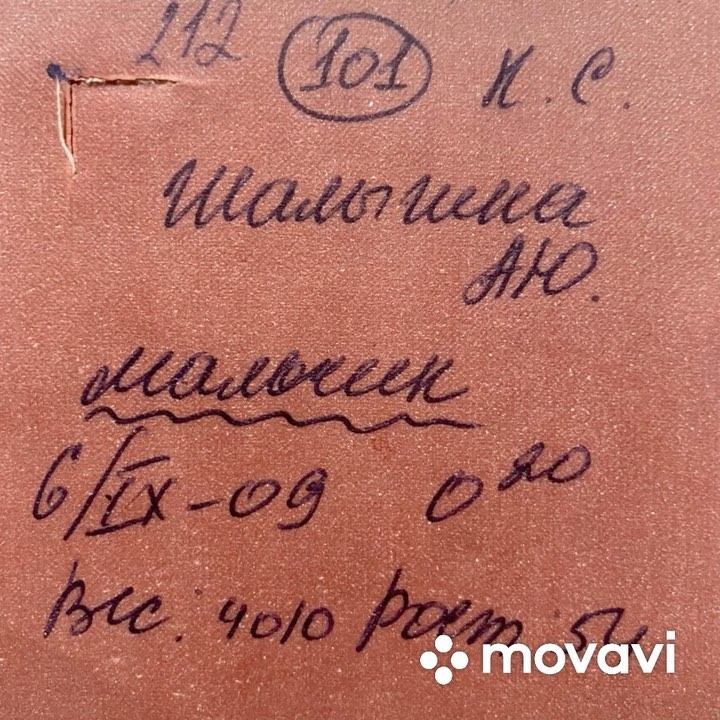 212 101 К. С.
Шалыгина
А.Ю.
мальчик
6/IX-09 0 20
Вес. 4010 Рост. 54
movavi